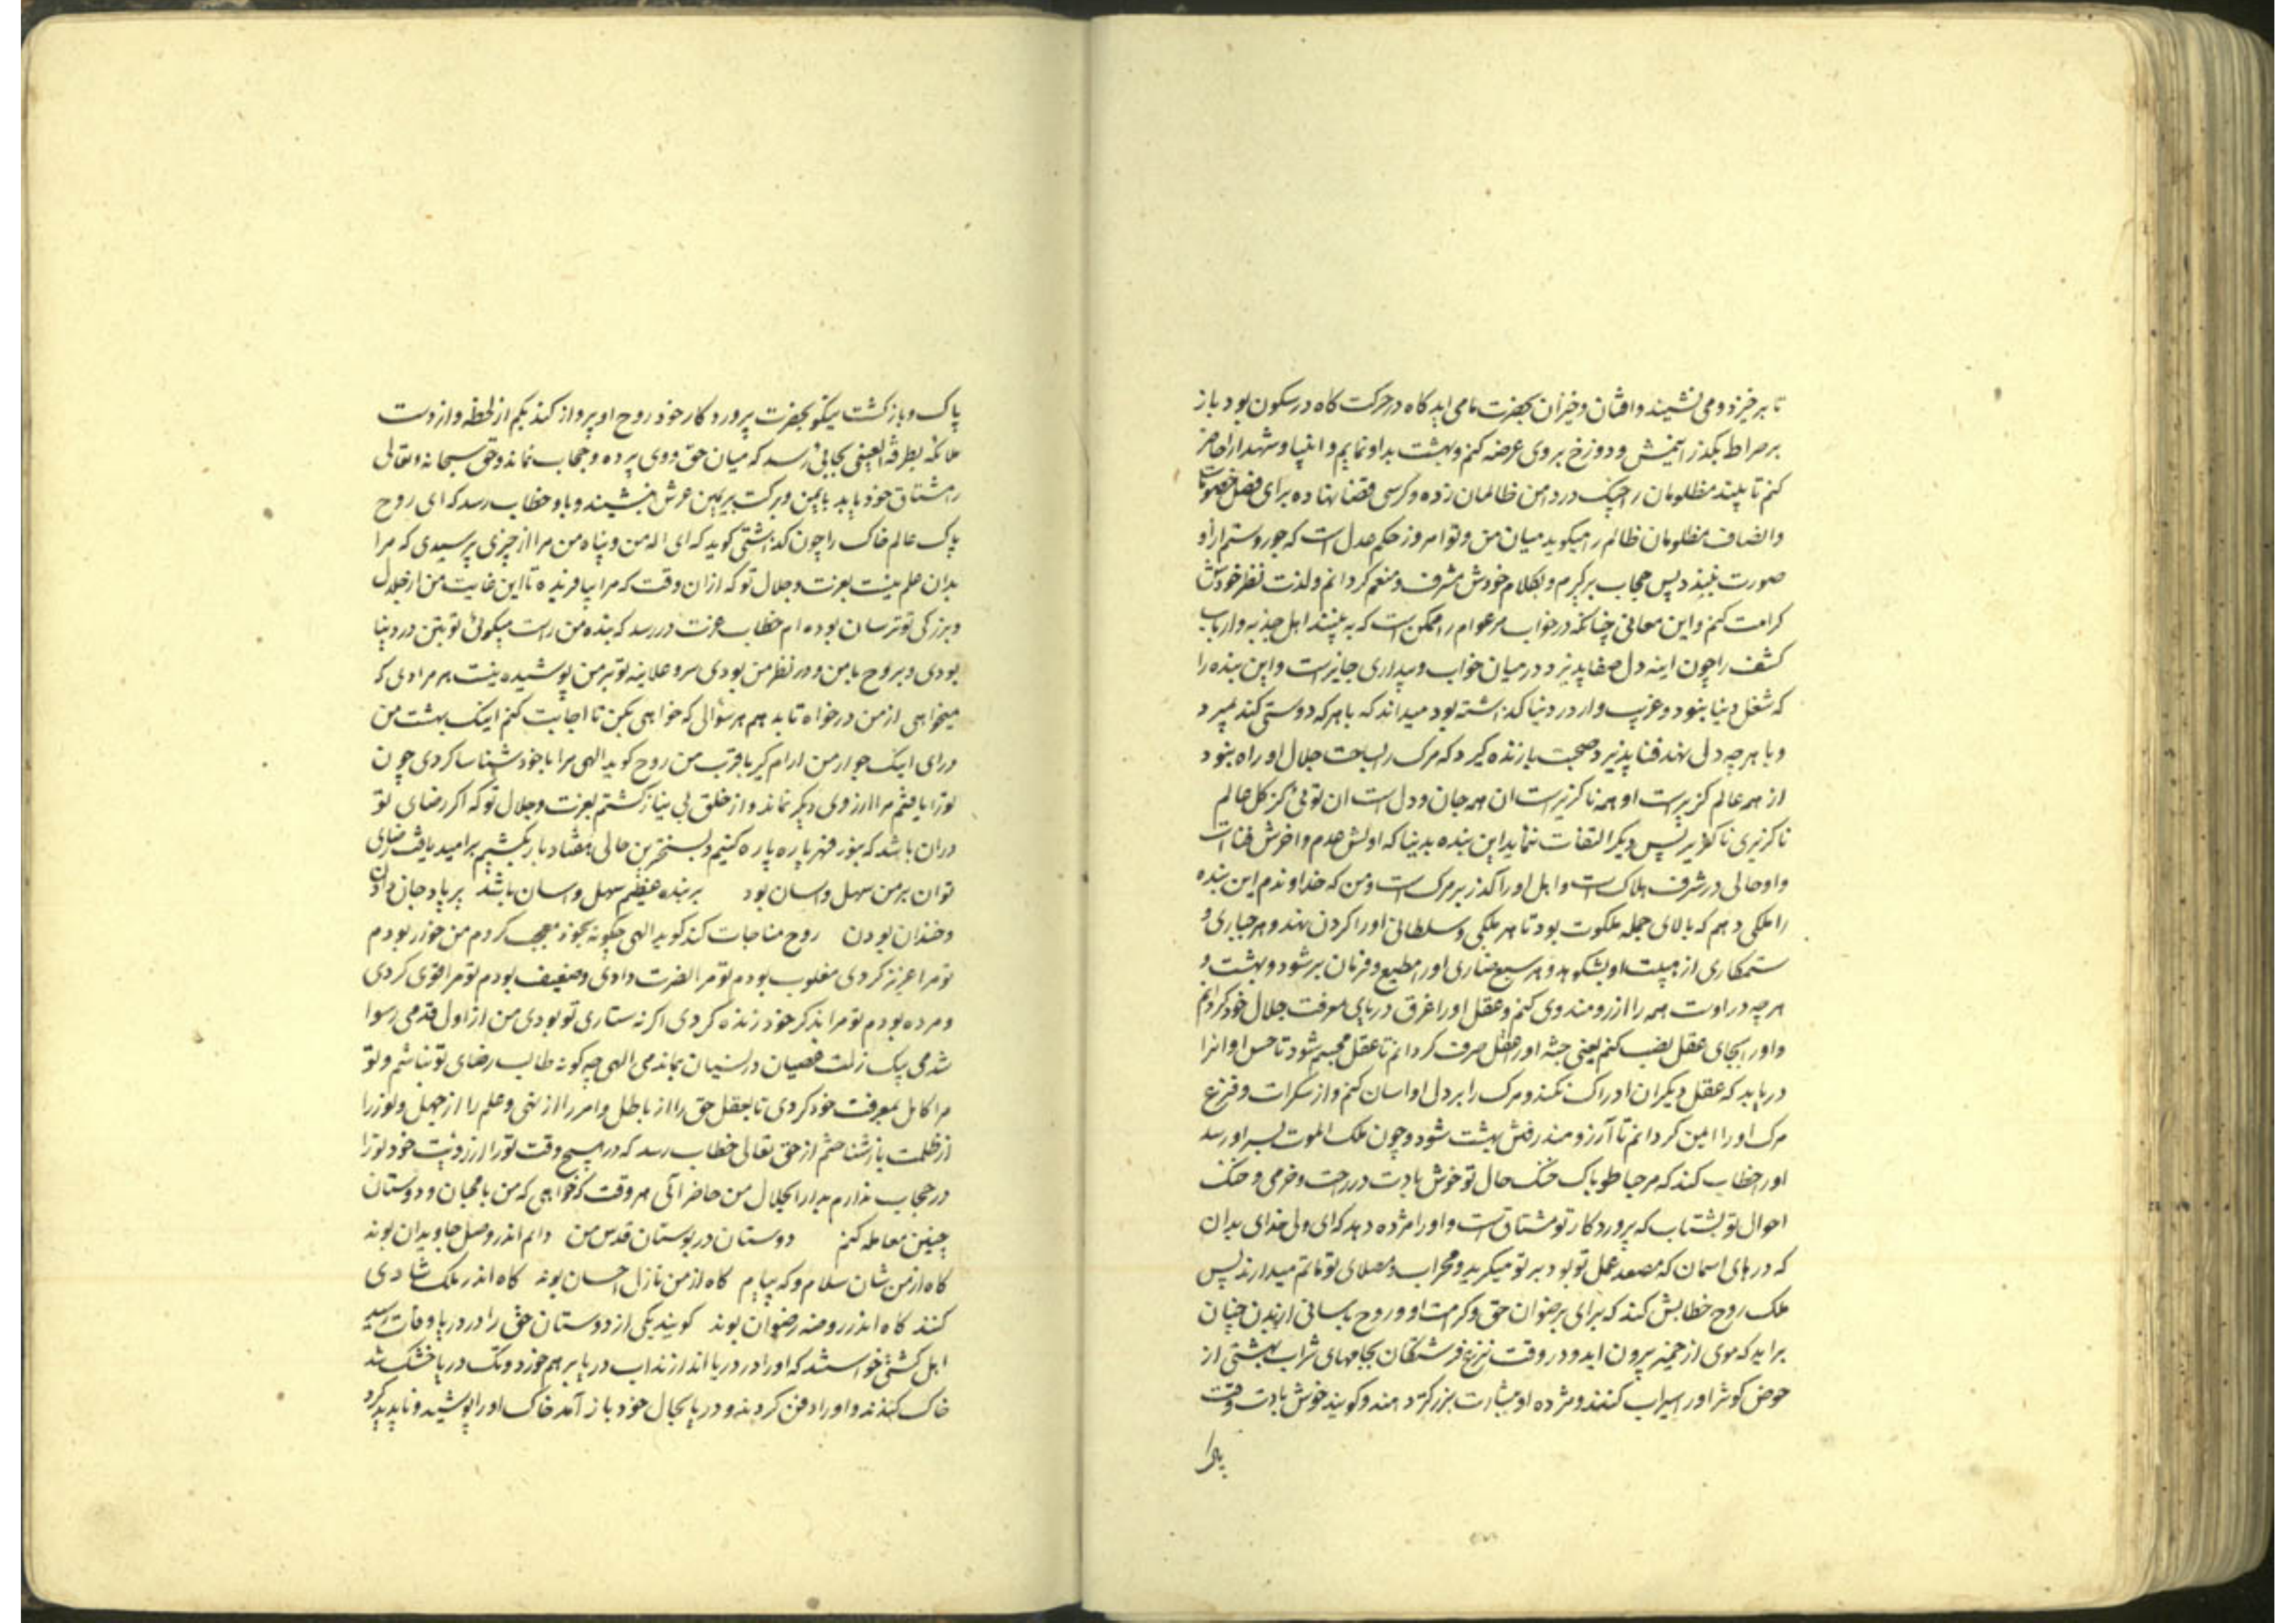 تا برخیزد و می نشیند و افتان و خیزان بحضرت ما می اید کاه در حرکت کاه در سکون بود باز
بر صراط بکذرانمیش و دوزخ بر وی عرضه کنم و بهشت بدو نمایم و انبیا و شهدا را حاضر
کنم تا ببیند مظلومان را چنک در دامن ظالمان زده و کرسی قضا نهاده برای فصل خصومات
و انصاف مظلومان ظالم را میکوید میان من و تو امروز حکم عدل است که جور و ستم را او
صورت نبیند پس حجاب برکیرم و بکلام خودش مشرف و منعم کردانم و لذت نظر خودش
کرامت کنم و این معانی چنانکه در خواب مر عوام را ممکن است که به بینند اهل جذبه و ارباب
کشف را چون اینه دل صفا پدیرد در میان خواب و بیداری جایز است و این بنده را
که شغل دنیا نبود و غریب وار در دنیا کذاشته بود میداند که با هر که دوستی کند میرد
و با هر چه دل نهد فنا پذیرد صحبت با زنده کیرد که مرک را بساحت جلال او راه نبود
از همه عالم کزیر است او همه ناکزیر است ان همه جان و دل است ان توئی کز کل عالم
ناکزیری ناکزیر پس دیکر التفات ننماید این بنده بدنیا که اولش عدم و اخرش فناست
و او حالی در شرف هلاک است و اهل او را کذر بر مرک است و من که خداوندم این بنده
را ملکی دهم که بالای جمله ملکوت بود تا هر ملکی و سلطانی او را کردن نهد و هر جباری و
ستمکاری از هیبت او بشکوهد و هر سبع ضاری او را مطیع و فرمان بر شود و بهشت و
هر چه در اوست همه را ارزومند وی کنم و عقل او را غرق دریای معرفت جلال خود کردانم
و او را بجای عقل نصب کنم یعنی جثه او را عقل صرف کردانم تا عقل مجسم شود تا حس او انرا
دریابد که عقل دیکران ادراک نکند و مرک را بر دل او اسان کنم و از سکرات و فزع
مرک او را امین کردانم تا آرزومند رفتن بهشت شود و چون ملک الموت بسر او رسد
او را خطاب کند که مرحبا طوباک خنک حال تو خوش بادت در راحت و خرمی و خنک
احوال تو بشتاب که پروردکار تو مشتاق تست و او را مژده دهد که ای ولی خدای بدان
که درهای اسمان که مصعد عمل تو بود بر تو میکرید و محراب و مصلای تو ماتم میدارند پس
ملک روح خطابش کند که برای برضوان حق و کرمت او و روح باسانی از بدن چنان
براید که موی از خمیر بیرون اید و در وقت نزع فرشتکان بجامهای شراب بهشتی از
حوض کوثر او را سیراب کنند و مژده او بشارت بزرکتر دهند و کویند خوش بادت وقت
پاک و بازکشت نیکو بحضرت پروردکار خود روح او پرواز کند بکم از لحظه و از دست
ملائکه بطرفة العینی بجائی رسد که میان حق و وی پرده و حجاب نماند و حق سبحانه و تعالی
را مشتاق خود یابد با یمن و برکت بر یمین عرش بنشیند و باو خطاب رسد که ای روح
پاک عالم خاک را چون کذاشتی کوید که ای اله من و پناه من مرا از چیزی پرسیدی که مرا
بدان علم نیست بعزت و جلال تو که ازان وقت که مرا بیافریده تا این غایت من از جلال
و بزرکی تو ترسان بوده ام خطاب عزت در رسد که بنده من راست میکوئی تو بتن در دنیا
بودی و بروح با من و در نظر من بودی سر و علانیه تو بر من پوشیده نیست هر مرادی که
میخواهی از من درخواه تا بدهم هر سؤالی که خواهی بکن تا اجابت کنم اینک بهشت من
درای اینک جوار من ارام کیر با قرب من روح کوید الهی مرا با خود شناسا کردی چون
تو را یافتم مرا ارزوی دیکر نماند و از خلق بی نیاز کشتم بعزت و جلال تو که اکر رضای تو
دران باشد که بزور قهر پاره پاره کنیم و بسختترین حالی هفتاد بار بکشیم بر امید یافت رضای
تو ان بر من سهل و اسان بود بر بنده عظیم سهل و اسان باشد بر یاد جان دادن
و خندان بودن روح مناجات کند کوید الهی چکونه بخود معجب کردم من خوار بودم
تو مرا عزیز کردی مغلوب بودم تو مرا نصرت دادی و ضعیف بودم تو مرا قوی کردی
و مرده بودم تو مرا بذکر خود زنده کردی اکر نه ستاری تو بودی من از اول قدمی رسوا
شدمی بیک زلت عصیان در نسیان بماندمی الهی چه کونه طالب رضای تو نباشم و تو
مرا کامل بمعرفت خود کردی تا بعقل حق را از باطل و امر را از نهی و علم را از جهل و نور را
از ظلمت باز شناختم از حق تعالی خطاب رسد که در هیچ وقت تو را ارزویت خود تو را
در حجاب ندارم بدار الجلال من حاضر آئی هر وقت که خواهی که من با محبان و دوستان
چنین معامله کنم دوستان در بوستان قدس من دایم اندر وصل جاویدان بوند
کاه از من شان سلام و که پیام کاه از من نازل احسان بوند کاه اندر ملک شادی
کنند کاه اندر روضه رضوان بوند کویند یکی از دوستان حق را در دریا وفات رسید
اهل کشتی خواستند که او را در دریا اندازند اب دریا بر هم خورد و تک دریا خشک شد
خاک کندند و او را دفن کردند و دریا بحال خود باز آمد خاک او را پوشید و ناپدید کرد